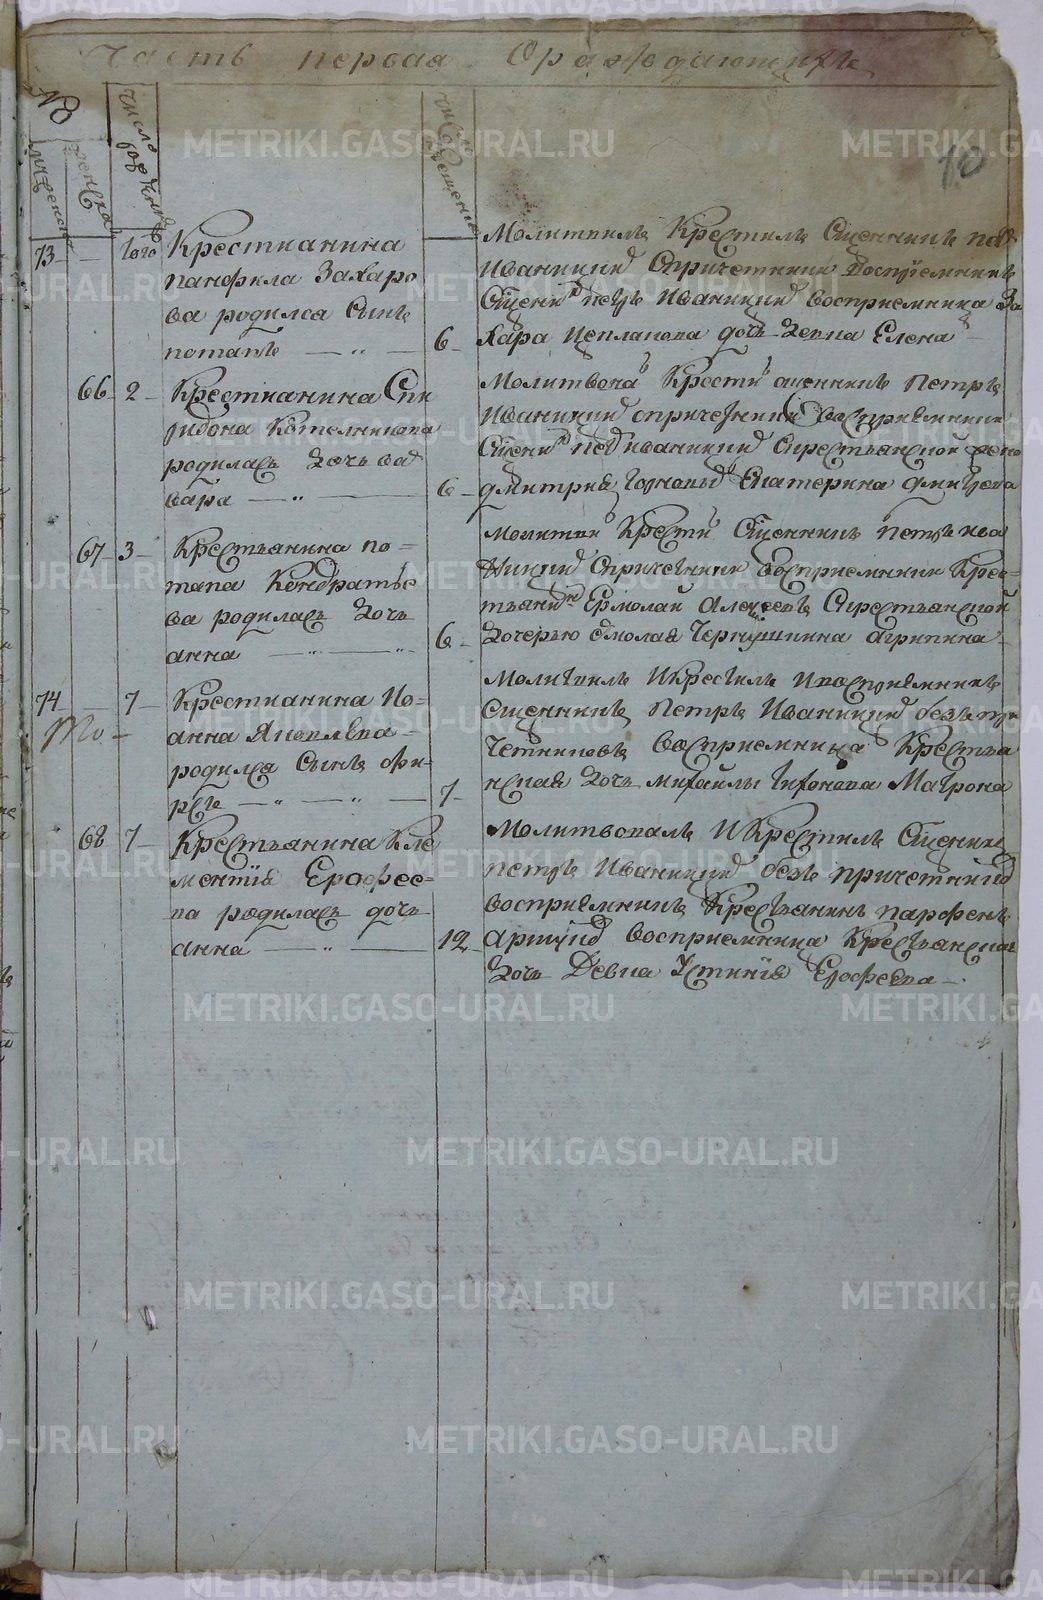 Часть первая О раждающихся
No
число рождения
число крещения
мужеска
женска
10
73 — того Крестианина
панфила Захаро
ва родился сынъ
потапъ — „ — 6
Молитвилъ Крестилъ Сщенникъ
Иваницкий Спричетники Воспріемникъ
Сщени петръ Иваницкий восприемница За
хара дочь Девка Елена
66 2 Крестианина Спи
ридона Котелникова
родилась Дочь ва
вара — „ — 6
Молитвова Крести сщенникъ петръ
Иваницкий спричетники восприемники
Сщени пет иваницкий Скрестьянской
дмитрия Екатерина дмитрева
67 3 Крестьянина по=
тапа Кондратье
ва родилась Дочь
анна — „ — „ — 6
молитви Крести Сщенникъ петръ ива
ницкий Спричетники восприемники Крес=
тьяни Ермолаи Алексеевъ Скрестьянской
Дочерью Агрипина
74 — 7 Крестианина Ио=
То — анна Яковлева
родился Сынъ фи=
рсъ — „ — „ — 7
Молитвилъ И Крестилъ И восприемникъ
Сщенникъ Петръ Иваницкий безъ при
четниковъ восприемница Крестья
нская Дочь михайлы тихонова Матрона
68 7 Крестьянина Кле
ментия Ерофее=
ва родилась дочь
анна — „ — 12
Молитвовалъ И Крестилъ Сщеник
петръ Иваницкий безъ причетник
восприемникъ Крестьянинъ парфенъ
восприемница Крестьянская
Дочь Девка Устиния Ерофеева —
METRIKI.GASO-URAL.RU